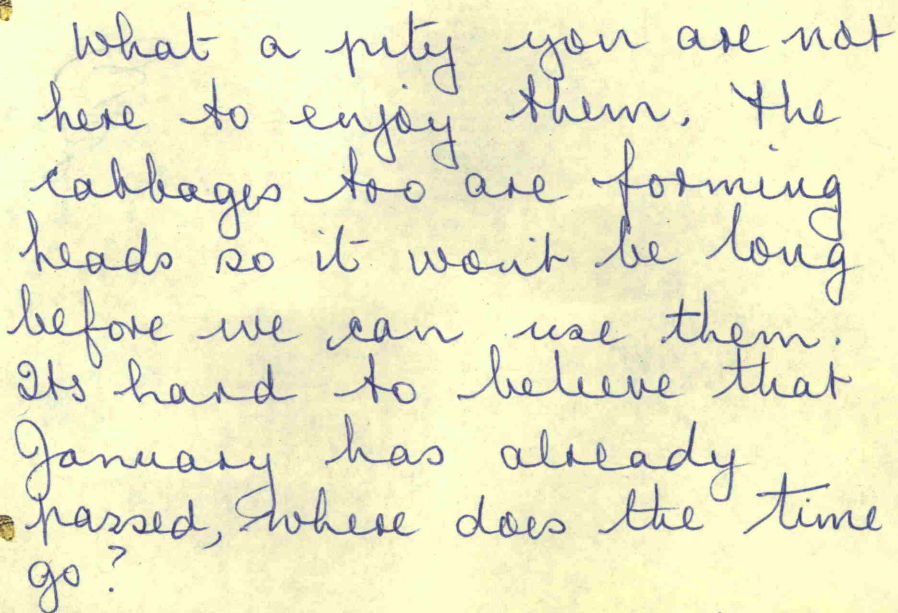 What a pity you are not
here to enjoy them. The
cabbages too are forming
heads so it won't be long
before we can use them.
Its hard to believe that
January has already
passed, where does the time
go?